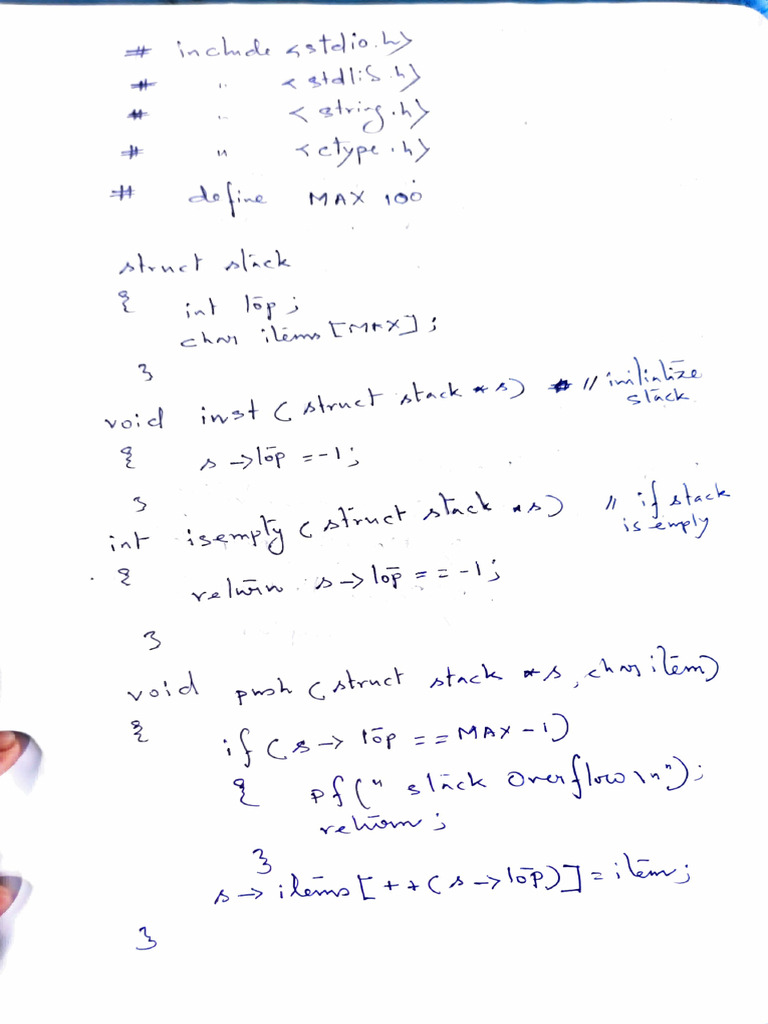 # include <stdio.h>
# " <stdlib.h>
# " <string.h>
# " <ctype.h>
# define MAX 100
struct stack
{ int top;
char items [MAX];
}
void inst (struct stack *s) // initialize
stack
{ s->top =-1;
}
int isempty (struct stack *s) // if stack
is empty
{
return s->top ==-1;
}
void push (struct stack *s, char item)
{
if (s-> top ==MAX-1)
{ pf(" stack overflow\n");
return;
}
s-> items [++(s->top)] = item;
}